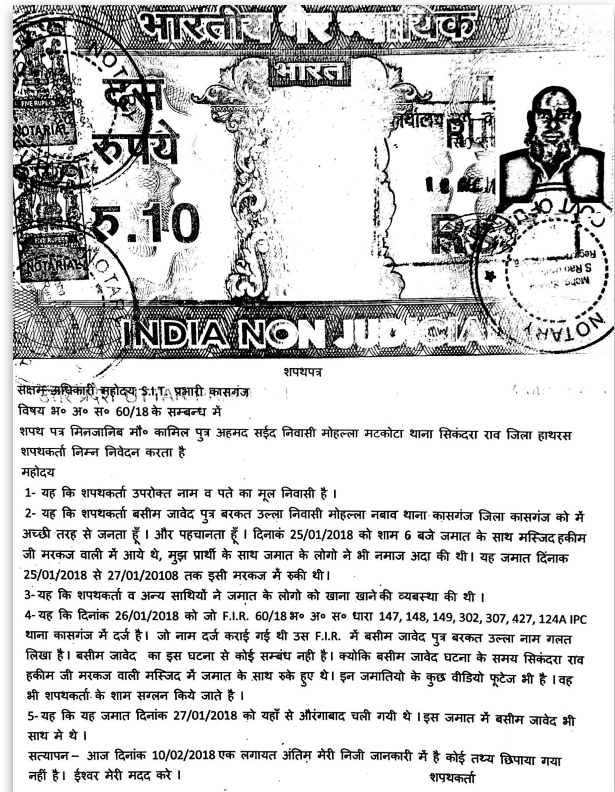 भारतीय गैर न्यायिक
भारत
दस
रुपये
रु.10
FIVE RUPEES
NOTARIAL
NOTARIAL
NOTARY
NOTARY
INDIA NON JUDICIAL
शपथपत्र
सक्षम अधिकारी महोदय S.I.T. प्रभारी कासगंज
विषय भ० अ० स० 60/18 के सम्बन्ध में
शपथ पत्र मिनजानिब मौ० कामिल पुत्र अहमद सईद निवासी मोहल्ला मटकोटा थाना सिकंदरा राव जिला हाथरस
शपथकर्ता निम्न निवेदन करता है
महोदय
1- यह कि शपथकर्ता उपरोक्त नाम व पते का मूल निवासी है ।
2- यह कि शपथकर्ता बसीम जावेद पुत्र बरकत उल्ला निवासी मोहल्ला नबाव थाना कासगंज जिला कासगंज को में
अच्छी तरह से जनता हूँ । और पहचानता हूँ । दिनाकं 25/01/2018 को शाम 6 बजे जमात के साथ मस्जिद हकीम
जी मरकज वाली में आये थे, मुझ प्रार्थी के साथ जमात के लोगो ने भी नमाज अदा की थी। यह जमात दिंनाक
25/01/2018 से 27/01/20108 तक इसी मरकज में रुकी थी।
3-यह कि शपथकर्ता व अन्य साथियों ने जमात के लोगो को खाना खाने की व्यबस्था की थी ।
4-यह कि दिनांक 26/01/2018 को जो F.I.R. 60/18 भ० अ० स० धारा 147, 148, 149, 302, 307, 427, 124A IPC
थाना कासगंज में दर्ज है। जो नाम दर्ज कराई गई थी उस F.I.R. में बसीम जावेद पुत्र बरकत उल्ला नाम गलत
लिखा है। बसीम जावेद का इस घटना से कोई सम्बंध नही है। क्योकि बसीम जावेद घटना के समय सिकंदरा राव
हकीम जी मरकज वाली मस्जिद में जमात के साथ रुके हुए थे। इन जमातियो के कुछ वीडियो फूटेज भी है ।वह
भी शपथकर्ता के शाम सग्लन किये जाते है ।
5-यह कि यह जमात दिनांक 27/01/2018 को यहाँ से औरंगाबाद चली गयी थे ।इस जमात में बसीम जावेद भी
साथ मे थे ।
सत्यापन – आज दिनांक 10/02/2018 एक लगायत अंतिम मेरी निजी जानकारी में है कोई तथ्य छिपाया गया
नहीं है। ईश्वर मेरी मदद करे ।
शपथकर्ता